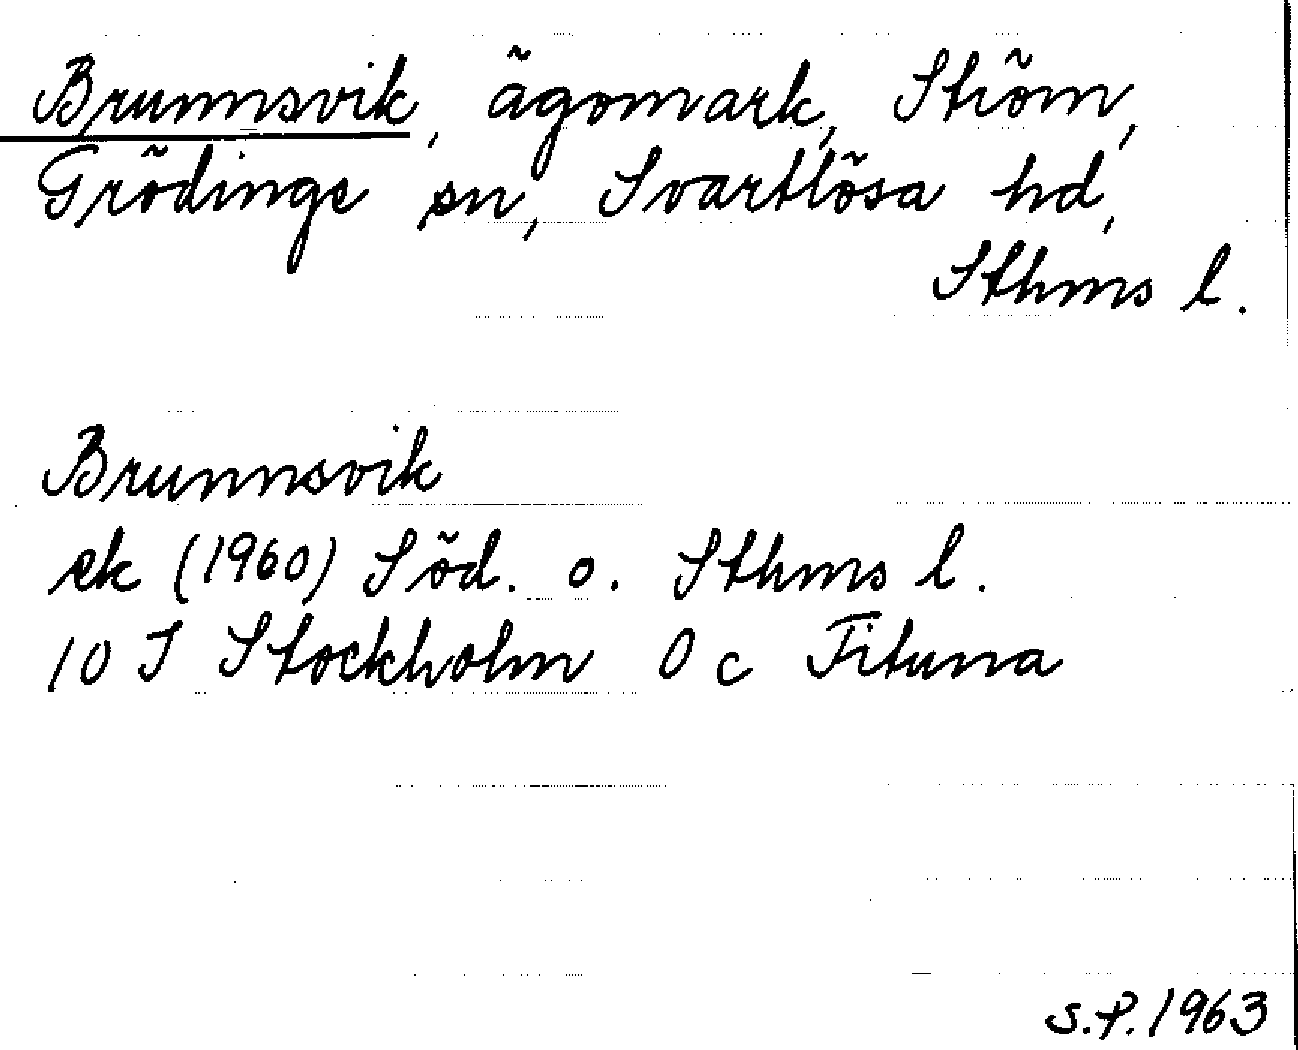 Brunnsvik, ägomark, Ström,
Grödinge sn, Svartlösa hd,
Sthms l.
Brunnsvik
ek (1960) Söd. o. Sthms l.
10 I Stockholm 0 c Fituna
S.P. 1963